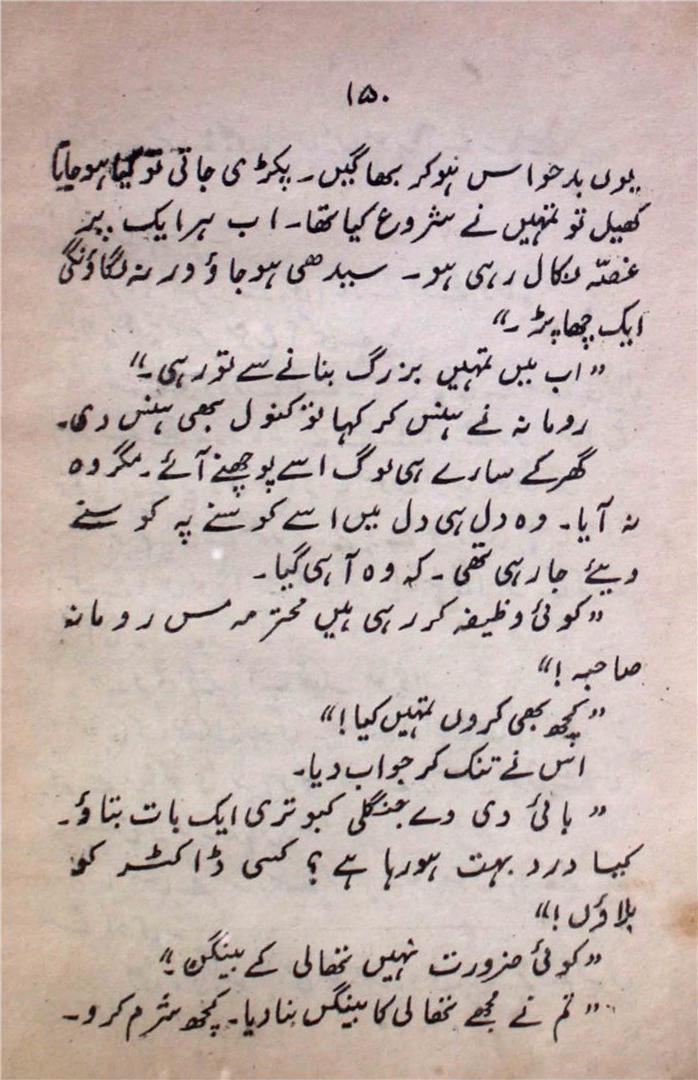 ۱۵۰
یوں بدحواس ہوکر بھاگیں۔ پکڑی جاتی تو کیا ہوجاتا
کھیل تو تمہیں نے شروع کیا تھا۔ اب ہر ایک پر
غصّہ نکال رہی ہو۔ سیدھی ہوجاؤ ورنہ لگاؤنگی
ایک چھاپڑ۔“
”اب میں تمہیں بزرگ بنانے سے تو رہی۔“
رومانہ نے ہنس کر کہا تو کنول بھی ہنس دی۔
گھر کے سارے ہی لوگ اسے پوچھنے آئے۔ مگر وہ
نہ آیا۔ وہ دل ہی دل میں اسے کوسنے پہ کوسنے
دیئے جارہی تھی۔ کہ وہ آہی گیا۔
”کوئی وظیفہ کر رہی ہیں محترمہ مس رومانہ
صاحبہ!“
”کچھ بھی کروں تمہیں کیا!“
اس نے تنک کر جواب دیا۔
”بائی دی وے جنگلی کبوتری ایک بات بتاؤ۔
کیا درد بہت ہورہا ہے؟ کسی ڈاکٹر کو
بلاؤں!“
”کوئی ضرورت نہیں تھالی کے بینگن۔“
”تم نے مجھے تھالی کا بینگن بنا دیا۔ کچھ شرم کرو۔